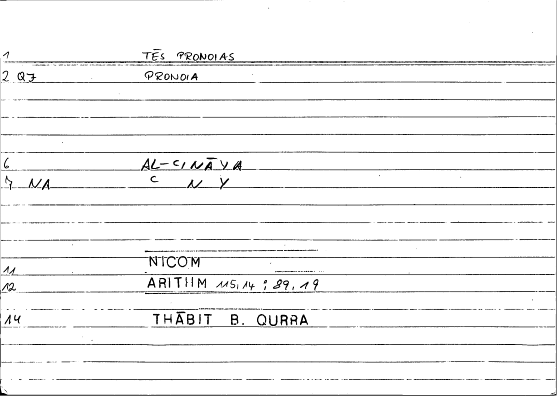 1 TĒS PRONOIAS
2 Q7 PRONOIA
6 AL-CINĀYA
7 NA C N Y
11 NICOM
12 ARITHM 115,14 : 89,19
14 THĀBIT B. QURRA